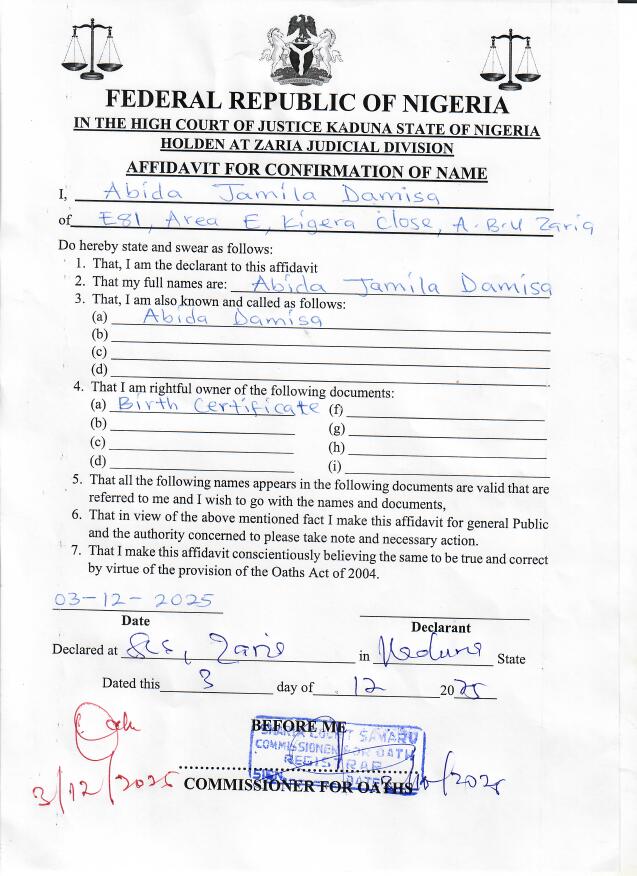 FEDERAL REPUBLIC OF NIGERIA
IN THE HIGH COURT OF JUSTICE KADUNA STATE OF NIGERIA
HOLDEN AT ZARIA JUDICIAL DIVISION
AFFIDAVIT FOR CONFIRMATION OF NAME
I, Abida Jamila Damisa
of E81, Area E, Kigera Close, A.B.U Zaria
Do hereby state and swear as follows:
1. That, I am the declarant to this affidavit
2. That my full names are: Abida Jamila Damisa
3. That, I am also known and called as follows:
(a) Abida Damisa
(b)
(c)
(d)
4. That I am rightful owner of the following documents:
(a) Birth Certificate (f)
(b) (g)
(c) (h)
(d) (i)
5. That all the following names appears in the following documents are valid that are
referred to me and I wish to go with the names and documents,
6. That in view of the above mentioned fact I make this affidavit for general Public
and the authority concerned to please take note and necessary action.
7. That I make this affidavit conscientiously believing the same to be true and correct
by virtue of the provision of the Oaths Act of 2004.
03-12-2025
Date Declarant
Declared at Zaria in Kaduna State
Dated this 3 day of 12 2025
BEFORE ME
SHARIA COURT SAMARU
COMMISSIONER FOR OATH
REGISTRAR
SIGN DATE
COMMISSIONER FOR OATHS
3/12/2025